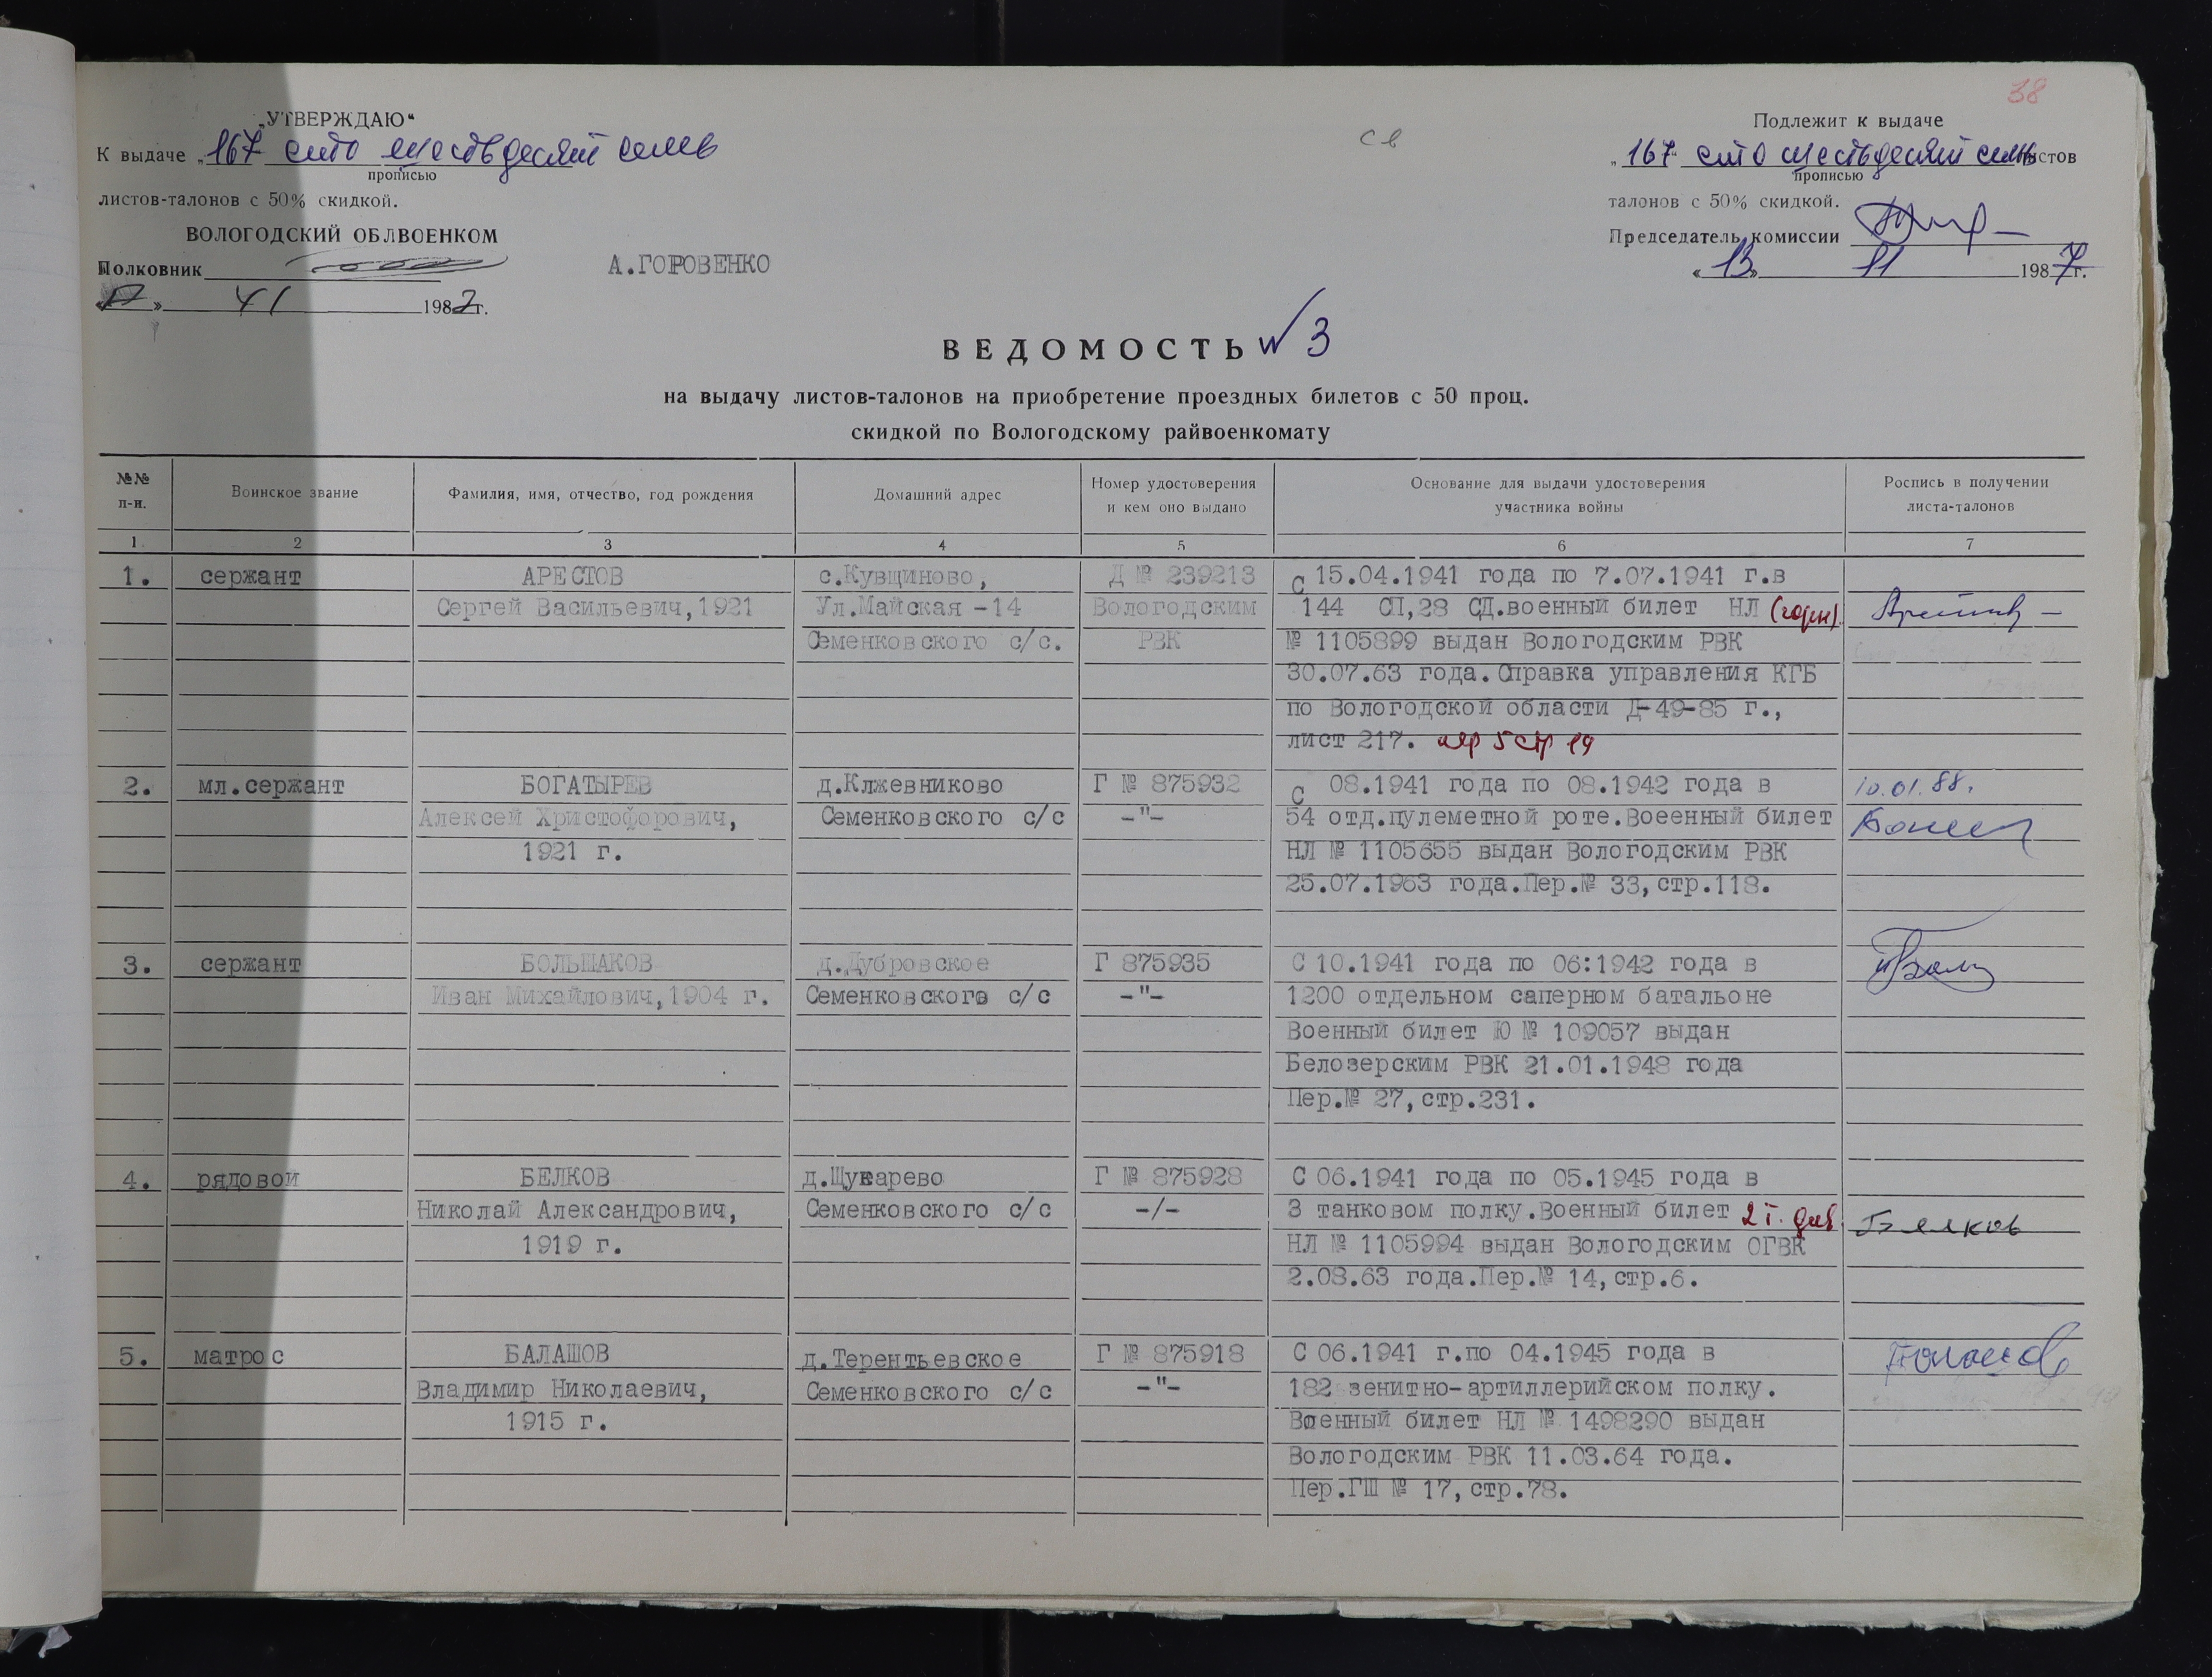 38
„УТВЕРЖДАЮ"
К выдаче „167 сто шестьдесят семь
прописью
листов-талонов с 50% скидкой.
ВОЛОГОДСКИЙ ОБЛВОЕНКОМ
Полковник А.ГОРОВЕНКО
198 г.
св
Подлежит к выдаче
„167 сто шестьдесят семь листов
прописью
талонов с 50% скидкой.
Председатель комиссии
«13» 11 1987 г.
ВЕДОМОСТЬ № 3
на выдачу листов-талонов на приобретение проездных билетов с 50 проц.
скидкой по Вологодскому райвоенкомату
№№ п-п.
Воинское звание
Фамилия, имя, отчество, год рождения
Домашний адрес
Номер удостоверения и кем оно выдано
Основание для выдачи удостоверения участника войны
Роспись в получении листа-талонов
1 2 3 4 5 6 7
1. сержант АРЕСТОВ с.Кувщиново, Д № 239213 С 15.04.1941 года по 7.07.1941 г.в
Сергей Васильевич,1921 Ул.Майская -14 Вологодским 144 СП,28 СД.военный билет НЛ
Семенковского с/с. РВК № 1105899 выдан Вологодским РВК
30.07.63 года.Справка управления КГБ
по Вологодской области Д-49-85 г.,
лист 217. пер 5 стр 19
2. мл.сержант БОГАТЫРЕВ д.Клжевниково Г № 875932 С 08.1941 года по 08.1942 года в 10.01.88.
Алексей Христофорович, Семенковского с/с -"- 54 отд.пулеметной роте.Воеенный билет
1921 г. НЛ № 1105655 выдан Вологодским РВК
25.07.1963 года.Пер.№ 33,стр.118.
3. сержант БОЛЬШАКОВ д.Дубровское Г 875935 С 10.1941 года по 06:1942 года в
Иван Михайлович,1904 г. Семенковского с/с -"- 1200 отдельном саперном батальоне
Военный билет Ю № 109057 выдан
Белозерским РВК 21.01.1948 года
Пер.№ 27,стр.231.
4. рядовой БЕЛКОВ д.Щукарево Г № 875928 С 06.1941 года по 05.1945 года в
Николай Александрович, Семенковского с/с -/- 3 танковом полку.Военный билет Белков
1919 г. НЛ № 1105994 выдан Вологодским ОГВК
2.08.63 года.Пер.№ 14,стр.6.
5. матрос БАЛАШОВ д.Терентьевское Г № 875918 С 06.1941 г.по 04.1945 года в
Владимир Николаевич, Семенковского с/с -"- 182 зенитно-артиллерийском полку.
1915 г. Военный билет НЛ № 1498290 выдан
Вологодским РВК 11.03.64 года.
Пер.ГШ № 17,стр.78.